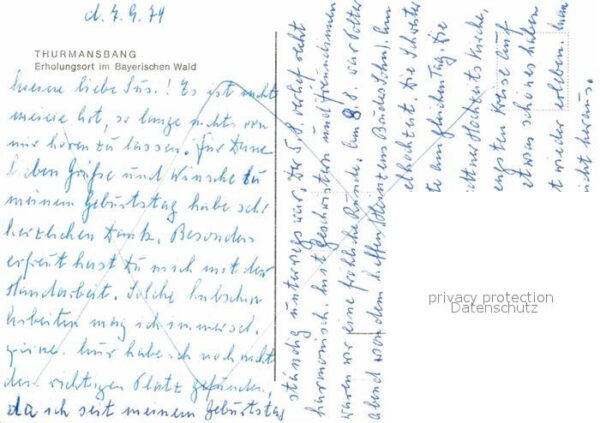 d. 7.9.74
THURMANSBANG
Erholungsort im Bayerischen Wald
Meine liebe Sus.! Es ist nicht
meine Art, so lange nichts von
mir hören zu lassen. Für Deine
lieben Grüße und Wünsche zu
meinem Geburtstag habe sehr
herzlichen Dank. Besonders
erfreut hast Du mich mit der
Handarbeit. Solche hübschen
Arbeiten mag ich immer sehr
gerne. Nur habe ich noch nicht
den richtigen Platz gefunden,
da ich seit meinem Geburtstag
ständig unterwegs war. Der 5.8. verlief recht
harmonisch. Mit Geschwistern und Freundinnen
waren wir eine fröhliche Runde. Am 8.8. war Polter
abend von dem Neffen
elhochzeit. Die Schwester
te am gleichen Tag. Die
Hochzeits Kirche,
engsten Kreise. Auf
etwas schönes haben
t wieder erleben. Man
cht heraus.
privacy protection
Datenschutz